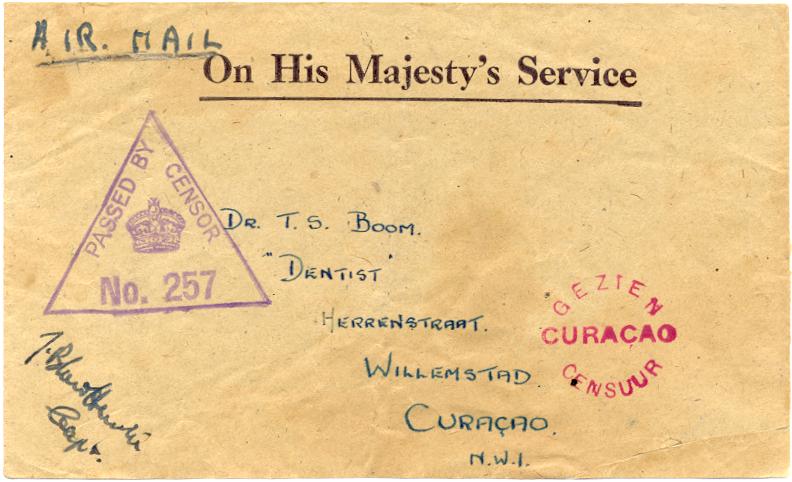 AIR. MAIL
On His Majesty's Service
PASSED BY CENSOR
No. 257
DR. T. S. BOOM.
"DENTIST"
HERRENSTRAAT.
WILLEMSTAD
CURAÇAO.
N.W.I.
GEZIEN
CURAÇAO
CENSUUR
Capt.